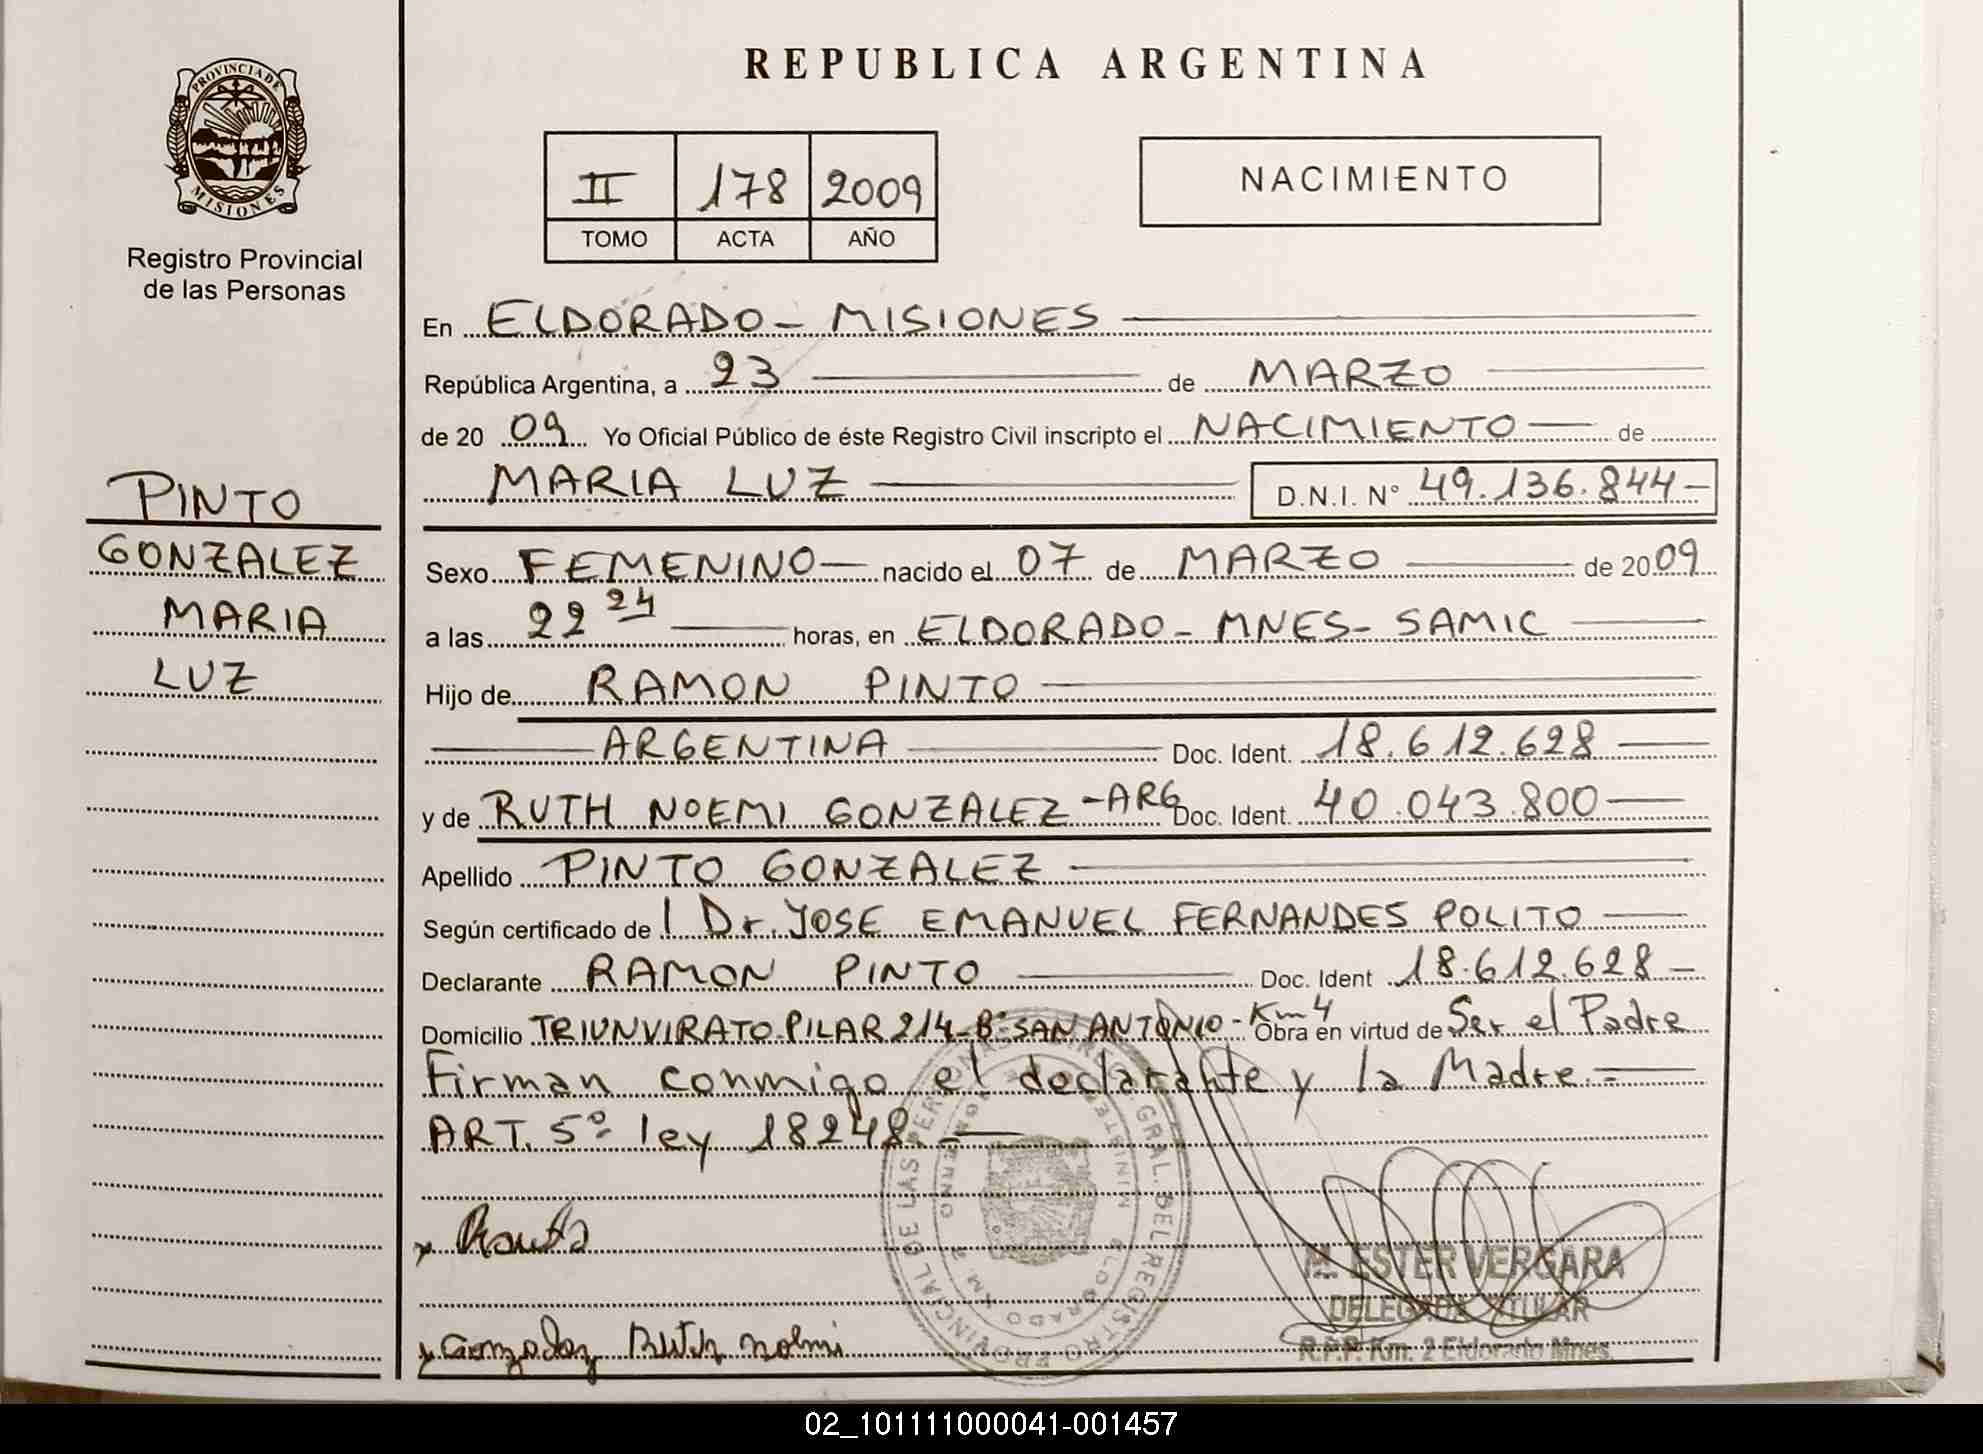 REPUBLICA ARGENTINA
PROVINCIA DE MISIONES
Registro Provincial
de las Personas
II 178 2009
TOMO ACTA AÑO
NACIMIENTO
En ELDORADO - MISIONES
República Argentina, a 23 de MARZO
de 20 09 Yo Oficial Público de éste Registro Civil inscripto el NACIMIENTO de
MARIA LUZ D.N.I. N° 49.136.844-
PINTO
GONZALEZ
MARIA
LUZ
Sexo FEMENINO nacido el 07 de MARZO de 2009
a las 22 24 horas, en ELDORADO - MNES - SAMIC
Hijo de RAMON PINTO
ARGENTINA Doc. Ident. 18.612.628
y de RUTH NOEMI GONZALEZ - ARG Doc. Ident. 40.043.800
Apellido PINTO GONZALEZ
Según certificado de Dr. JOSE EMANUEL FERNANDES POLITO
Declarante RAMON PINTO Doc. Ident 18.612.628 -
Domicilio TRIUNVIRATO-PILAR 214-B° SAN ANTONIO - Km 4 Obra en virtud de Ser el Padre
Firman conmigo el declarante y la Madre.-
ART. 5° ley 18248.-
x Gonzalez Ruth Noemi
M. ESTER VERGARA
DELEGADA TITULAR
R.P.P. Km. 2 Eldorado Mnes.
02_101111000041-001457